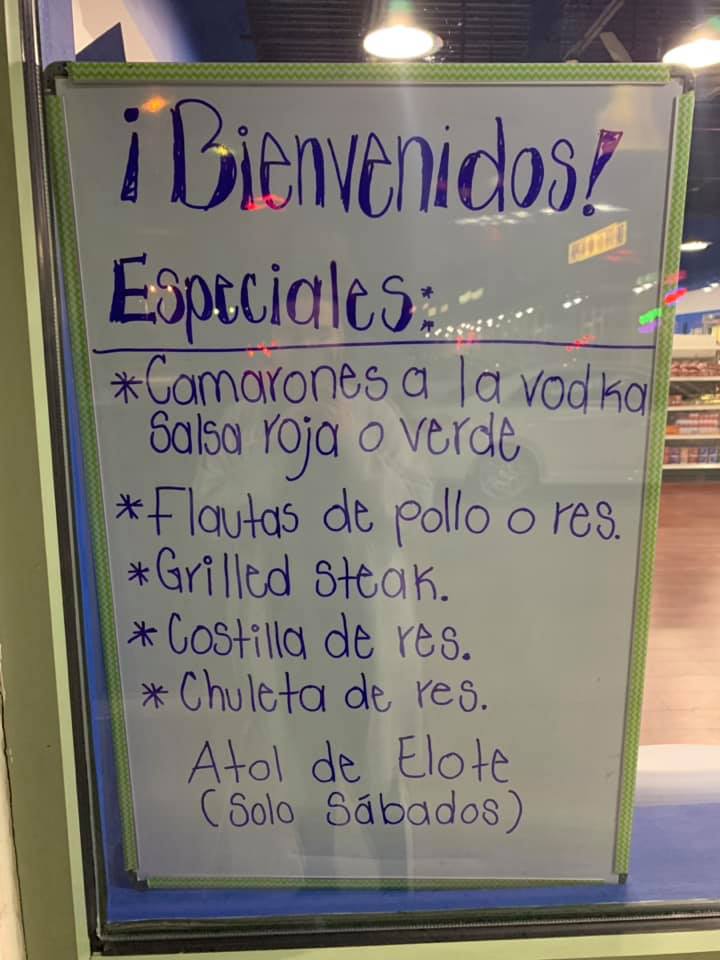 ¡Bienvenidos!
Especiales:
*Camarones a la vodka
Salsa roja o verde
*Flautas de pollo o res.
*Grilled steak.
*Costilla de res.
*Chuleta de res.
Atol de Elote
(Solo Sábados)